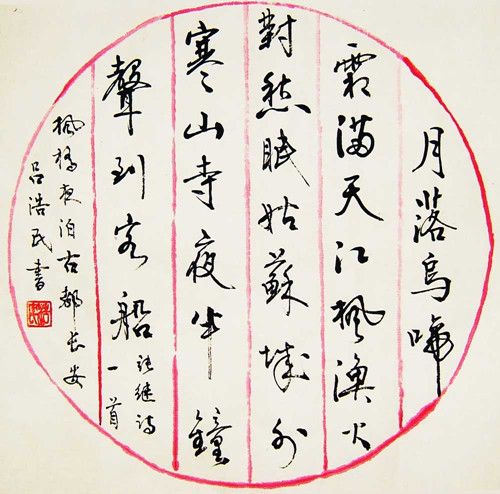 月落烏啼
霜满天江楓漁火
對愁眠姑蘇城外
寒山寺夜半鐘
聲到客船
張継诗
一首
楓橋夜泊古都长安
吕浩民書